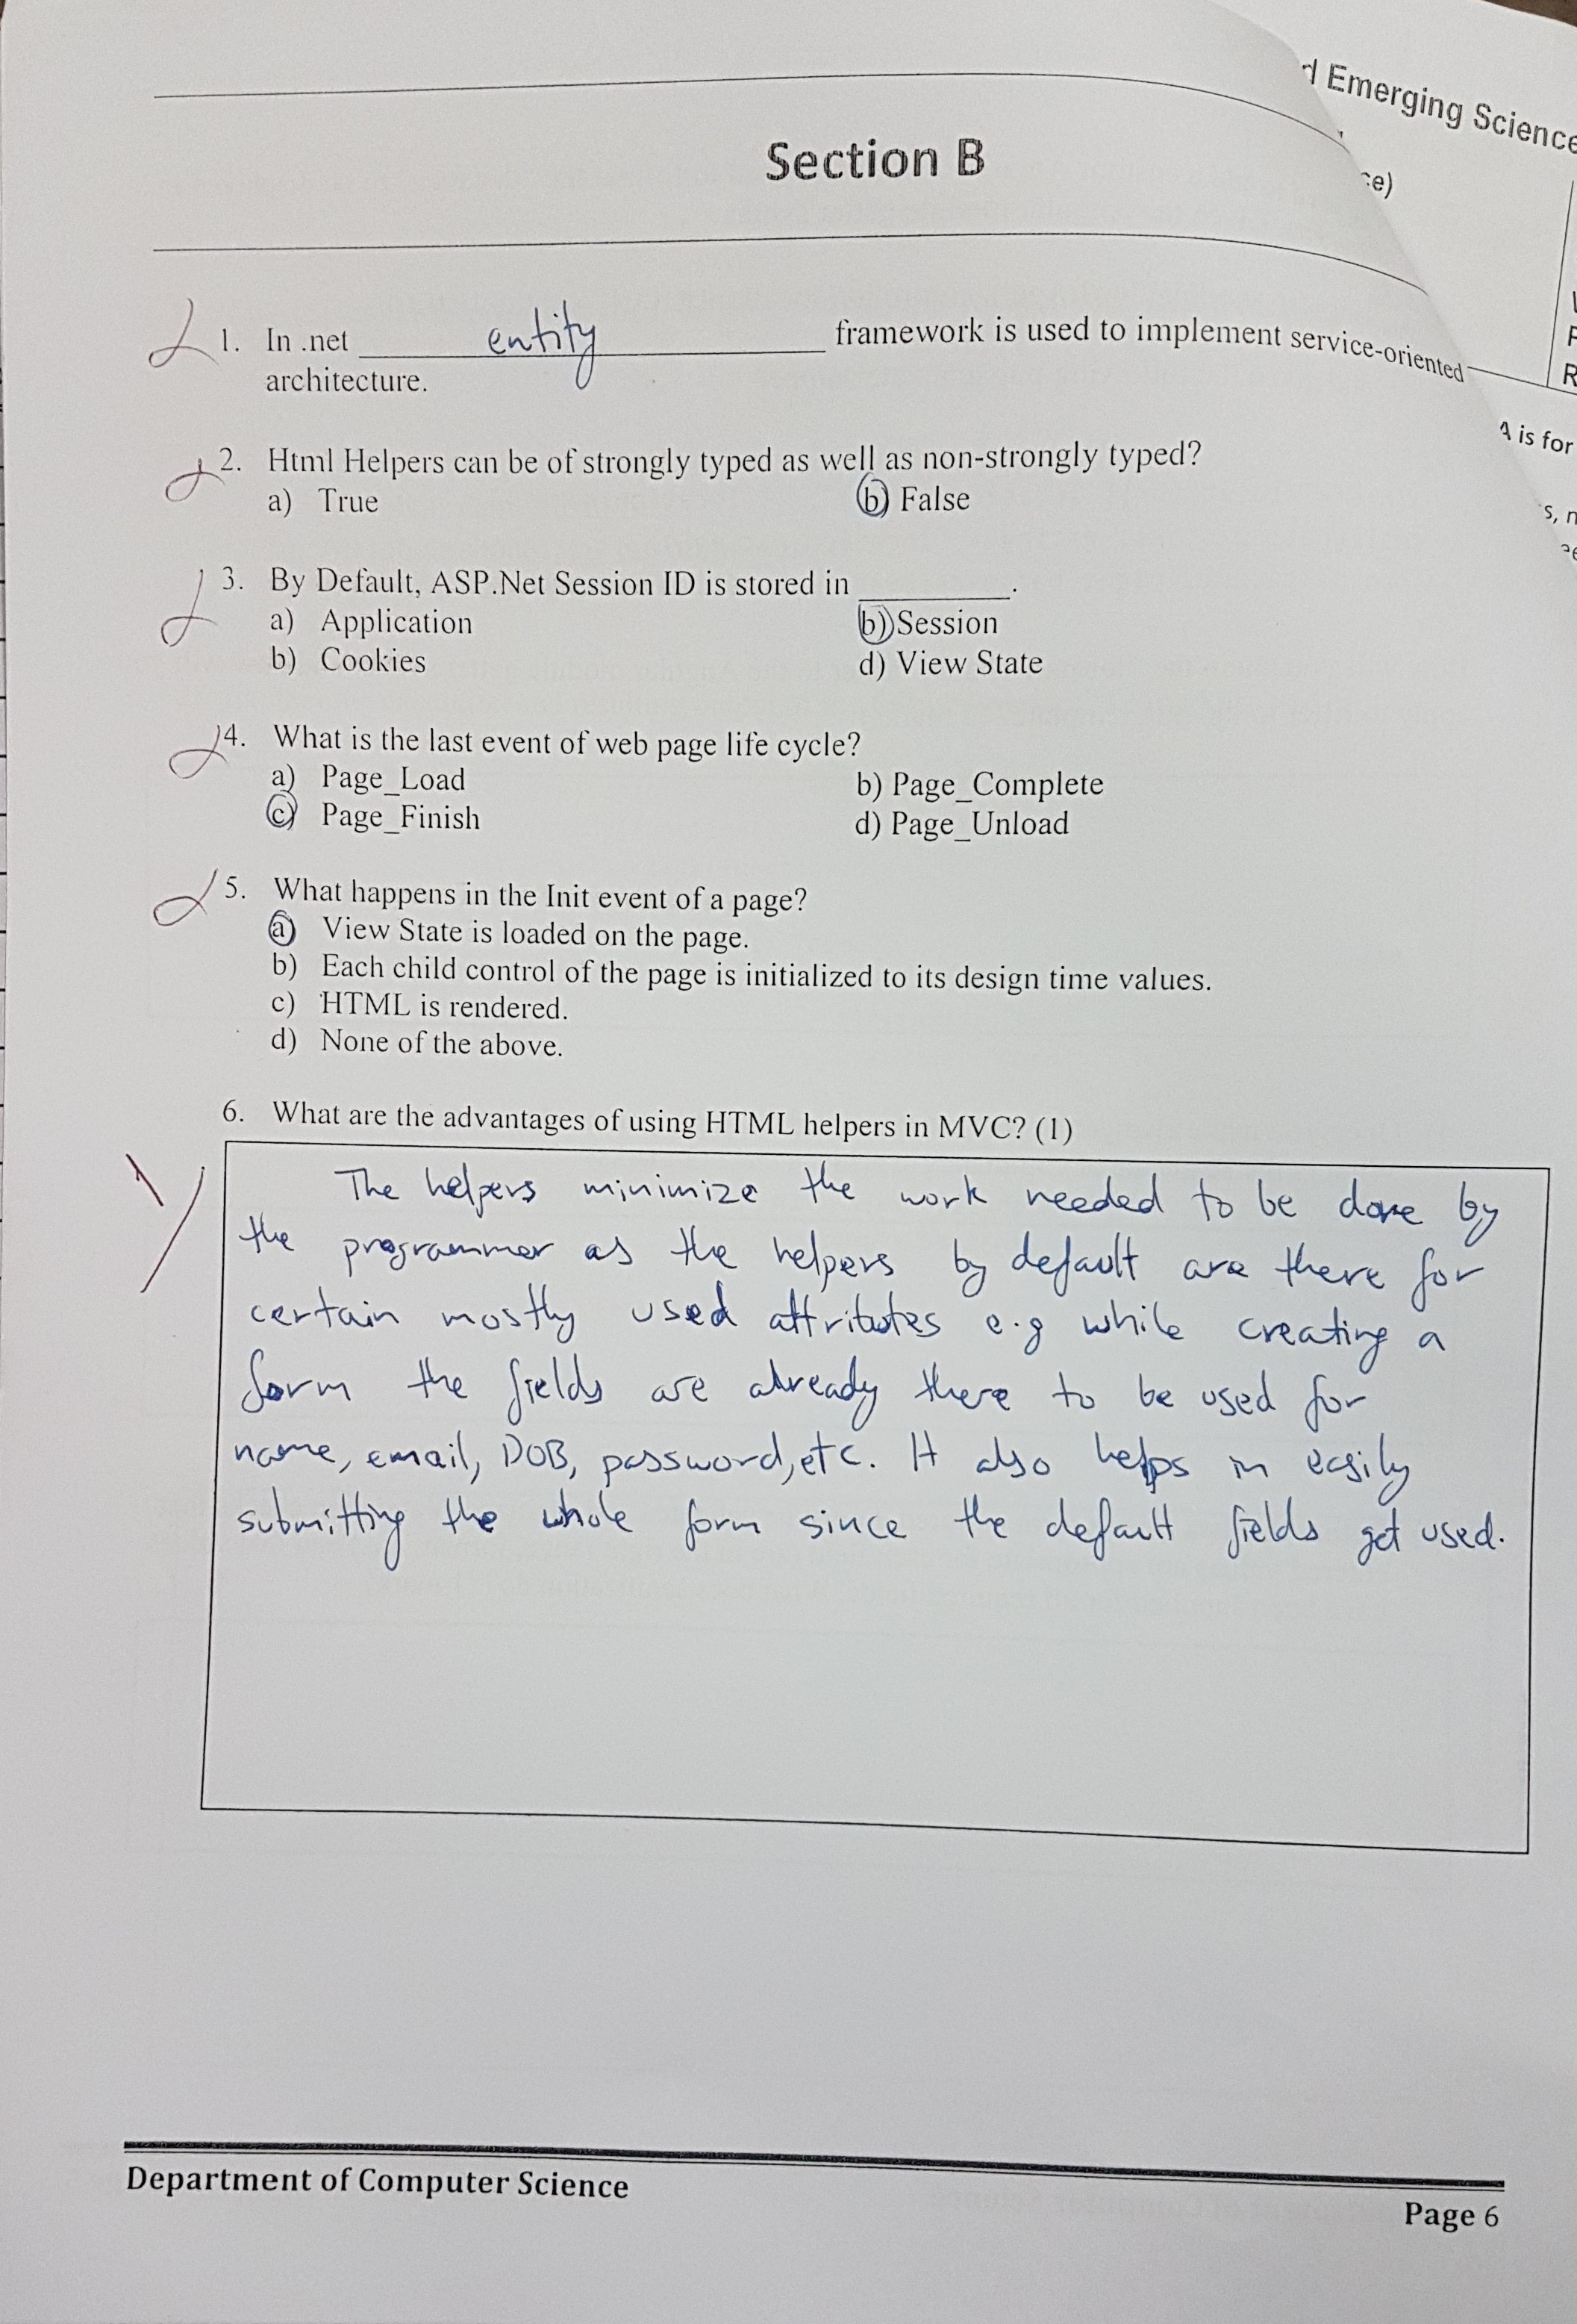 Emerging Science
Section B
1. In .net entity framework is used to implement service-oriented
architecture.
A is for
2. Html Helpers can be of strongly typed as well as non-strongly typed?
a) True b) False
3. By Default, ASP.Net Session ID is stored in __________.
a) Application b) Session
b) Cookies d) View State
4. What is the last event of web page life cycle?
a) Page_Load b) Page_Complete
c) Page_Finish d) Page_Unload
5. What happens in the Init event of a page?
a) View State is loaded on the page.
b) Each child control of the page is initialized to its design time values.
c) HTML is rendered.
d) None of the above.
6. What are the advantages of using HTML helpers in MVC? (1)
1
The helpers minimize the work needed to be done by
the programmer as the helpers by default are there for
certain mostly used attributes e.g while creating a
form the fields are already there to be used for
name, email, DOB, password, etc. It also helps in easily
submitting the whole form since the default fields get used.
Department of Computer Science
Page 6